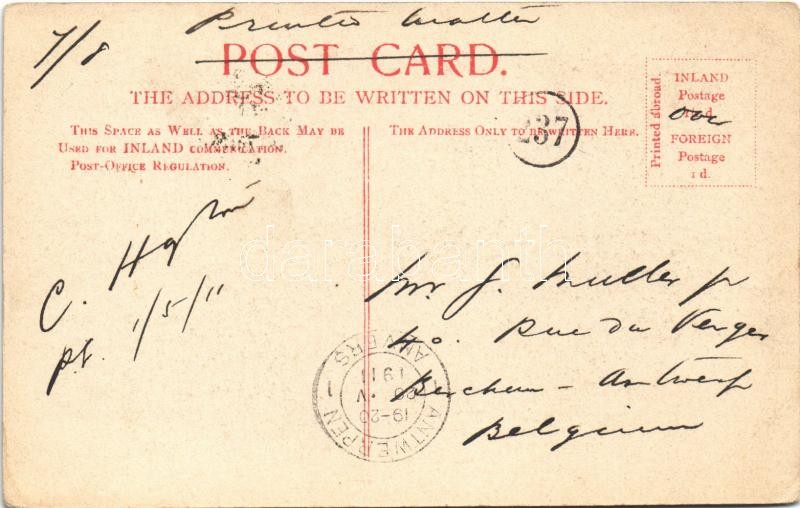 7/8 Printed Matter
POST CARD.
THE ADDRESS TO BE WRITTEN ON THIS SIDE.
THIS SPACE AS WELL AS THE BACK MAY BE
USED FOR INLAND COMMUNICATION.
POST-OFFICE REGULATION.
THE ADDRESS ONLY TO BE WRITTEN HERE.
237
Printed abroad.
INLAND
Postage
FOREIGN
Postage
1 d.
C.
pt. 1/5/11
Mr. J. Muller jr
40. Rue du Verger
Berchem - Antwerp
Belgium
ANTWERPEN 1
ANVERS
19-20
1911
darabanth